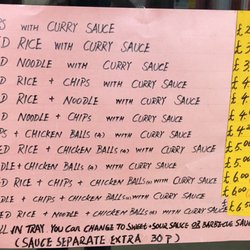 PS WITH CURRY SAUCE £2
ED RICE WITH CURRY SAUCE £
D NOODLE WITH CURRY SAUCE £3
D RICE + CHIPS WITH CURRY SAUCE £4
D RICE + NOODLE WITH CURRY SAUCE £4
D NOODLE + CHIPS WITH CURRY SAUCE £4
PS + CHICKEN BALLS (4) WITH CURRY SAUCE £
ED RICE + CHICKEN BALLS (4) WITH CURRY SAUCE £5.0
DLE + CHICKEN BALLS (4) WITH CURRY SAUCE £5.00
D RICE + CHIPS + CHICKEN BALLS WITH CURRY SAUCE £6.00
DLE + CHIPS + CHICKEN BALLS WITH CURRY SAUCE £6.0
ED RICE + NOODLE + CHICKEN BALLS WITH CURRY SAUCE £6.50
LL IN TRAY YOU CAN CHANGE TO SWEET + SOUR SAUCE OR BARBECUE SAU
(SAUCE SEPARATE EXTRA 30P)